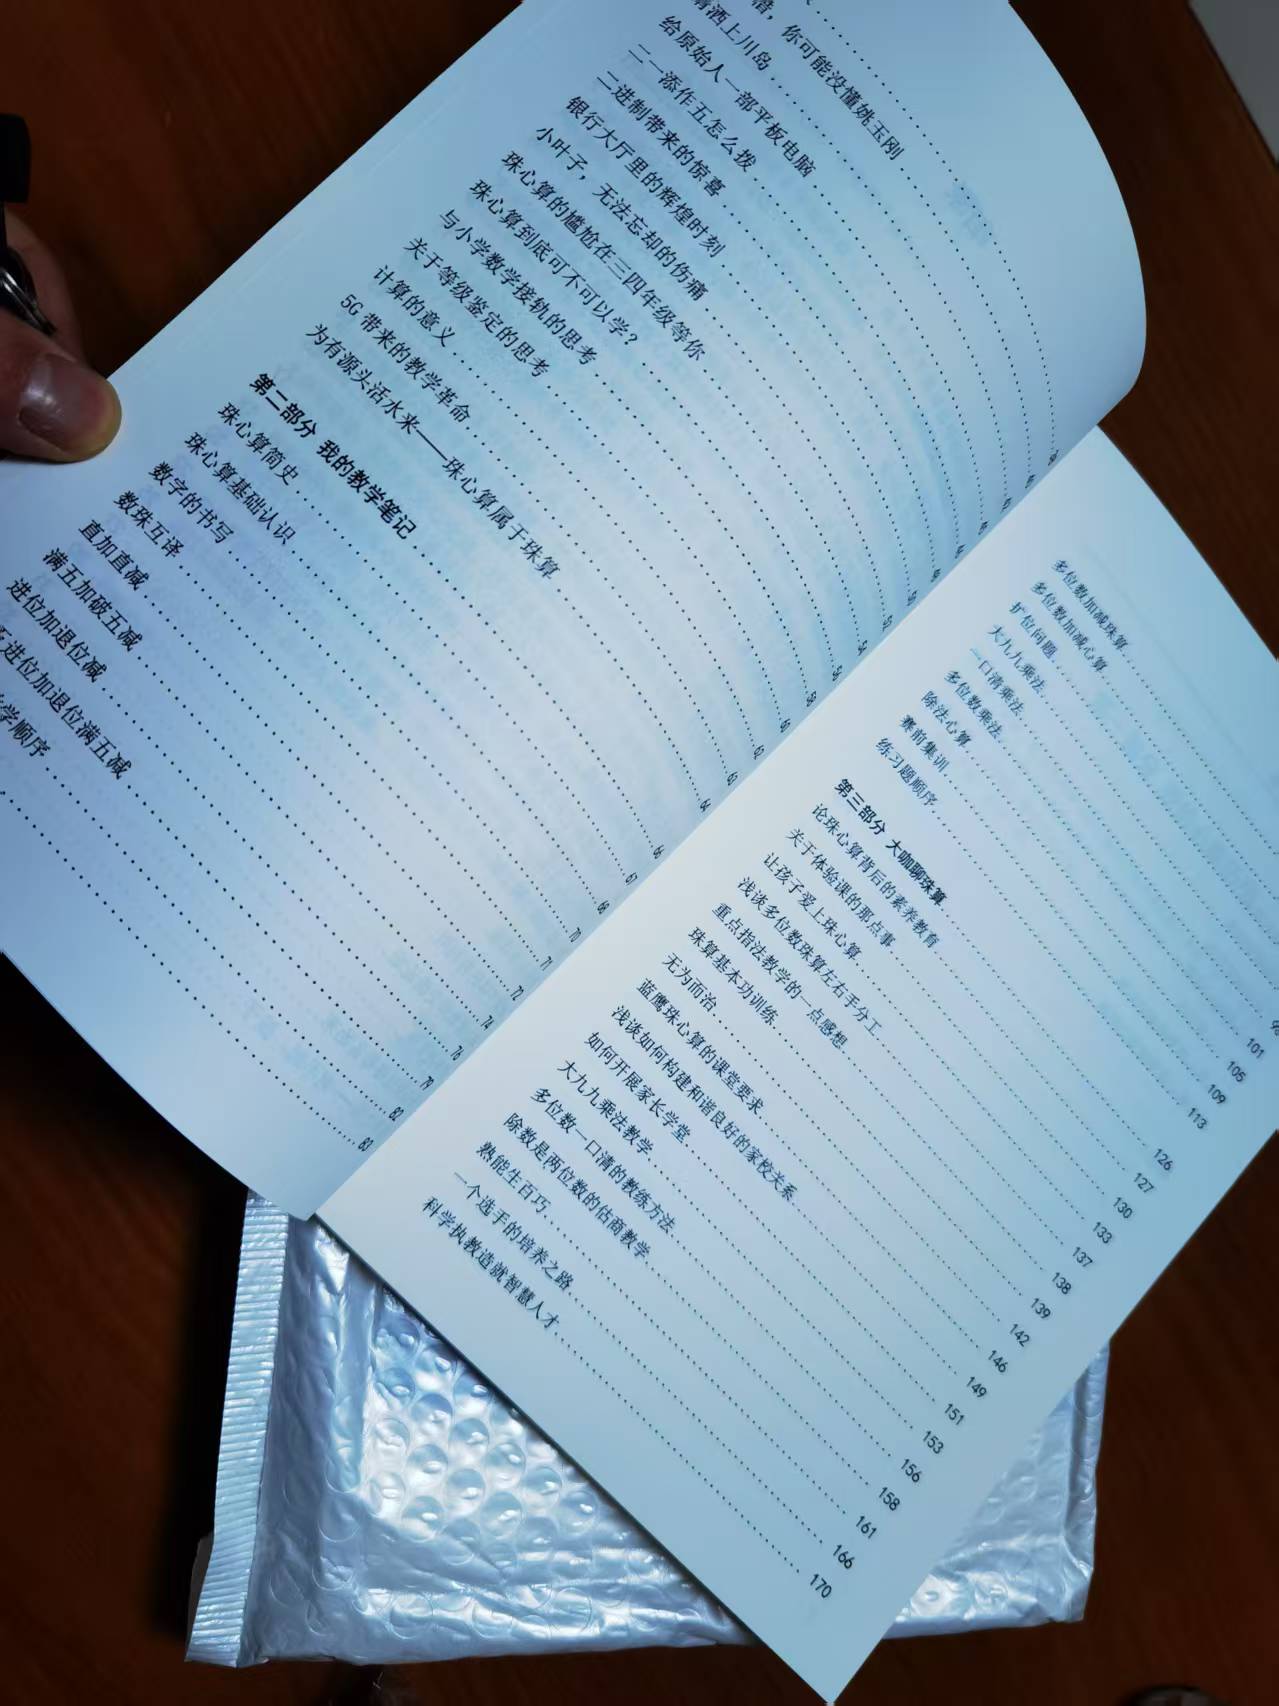 你可能没懂姚玉刚
洒上川岛
给原始人一部平板电脑
二一添作五怎么拨
二进制带来的惊喜
银行大厅里的辉煌时刻
小叶子，无法忘却的伤痛
珠心算的尴尬在三四年级等你
珠心算到底可不可以学？
与小学数学接轨的思考
关于等级鉴定的思考 60
计算的意义 62
5G 带来的教学革命 63
为有源头活水来——珠心算属于珠算 64
第二部分 我的教学笔记 66
珠心算简史 67
珠心算基础认识 68
数字的书写 70
数珠互译 71
直加直减 72
满五加破五减 74
进位加退位减 76
进位加退位满五减 79
学顺序 82
83
多位数加减珠算
多位数加减心算
扩位问题
大九九乘法
一口清乘法
多位数乘法 101
除法心算 105
赛前集训 109
练习题顺序 113
第三部分 大咖聊珠算 126
论珠心算背后的素养教育 127
关于体验课的那点事 130
让孩子爱上珠心算 133
浅谈多位数珠算左右手分工 137
重点指法教学的一点感想 138
珠算基本功训练 139
无为而治 142
蓝鹰珠心算的课堂要求 146
浅谈如何构建和谐良好的家校关系 149
如何开展家长学堂 151
大九九乘法教学 153
多位数一口清的教练方法 156
除数是两位数的估商教学 158
熟能生百巧 161
一个选手的培养之路 166
科学执教造就智慧人才 170